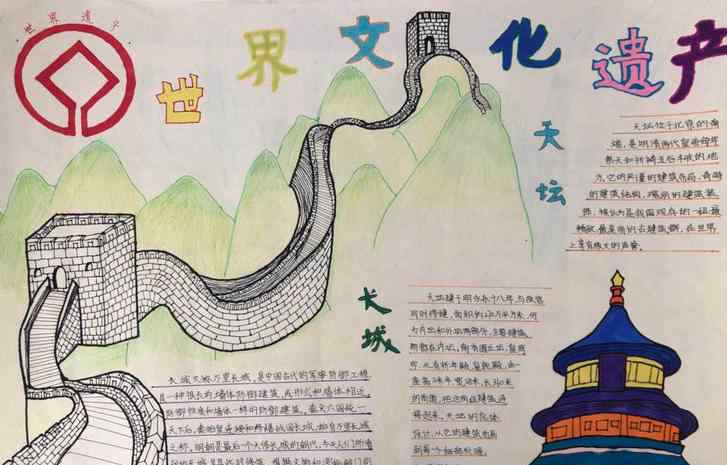 世界遗产
世界文化遗产
天坛
天坛位于北京的南
端，是明清两代皇帝每年
祭天和祈祷五谷丰收的地
方，它的严谨的建筑布局，奇特
的建筑结构，瑰丽的建筑装
饰，被认为是我国现存的一组最
精致，最美丽的古建筑群，在世界
上享有极大的声誉。
长城
天坛建于明永乐十八年，与故宫
同时修建，面积约270万平方米，分
为内坛和外坛两部分，主要建筑
物都在内坛，南有圜丘坛、皇穹
宇，北有祈年殿、皇乾殿，由一
座高
把这两组建筑
接起来，天坛的总体
设计，从它的建筑布局
到每一个细部处理，
长城又称万里长城，是中国古代的军事防御工程
是一种很长的墙体防御建筑，或形式和墙体相近，
防御性质和墙体一样的防御建筑。秦灭六国统一
天下后，秦始皇连接和修缮战国长城，始有万里长城
之称，明朝是最后一个大修长城的朝代，今天人们所看